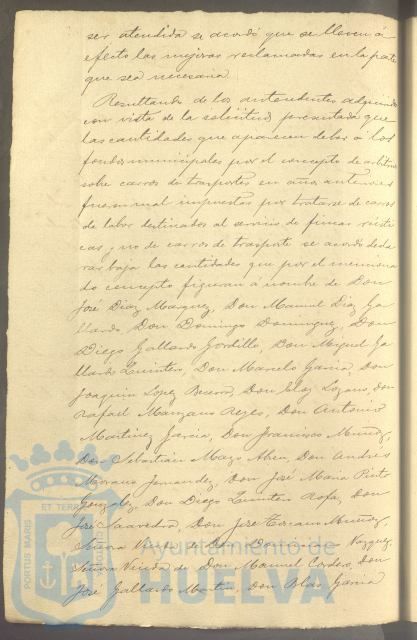 ser atendida se acordó que se lleven á
efecto las mejoras reclamadas en la parte
que sea necesaria.
Resultando de los antecedentes adquiridos
con vista de la solicitud presentada que
las cantidades que aparecen deber á los
fondos municipales por el concepto de arbitrios
sobre carros de trasportes en años anteriores
fueron mal impuestas por tratarse de carros
de labor destinados al servicio de fincas rústi
cas, y no de carros de trasporte se acordó decla
rar baja las cantidades que por el menciona
do concepto figuran á nombre de Don
José Diaz Marquez, Don Manuel Diaz Ga
llardo, Don Domingo Dominguez, Don
Diego Gallardo Gordillo, Don Miguel Ga
llardo Quintero, Don Marcelo Garcia, Don
Joaquin Lopez Becerro, Don Lozano, Don
Rafael Manzano Reyes, Don Antonio
Martinez Garcia, Don Francisco Muñoz,
Don Sebastián Mazo Abreu, Don Andres
Moreno Fernandez, Don José Maria Pinto
Gonzalez, Don Diego Quintero Rofa, Don
José Saavedra, Don José Toscano Muñoz,
Señora Viuda de Don Vazquez,
Señora Viuda de Don Manuel Cordero, Don
José Gallardo Martin, Don Blas Garcia
PORTUS MARIS
ET TERRAE
CUSTODIA
Ayuntamiento de
HUELVA